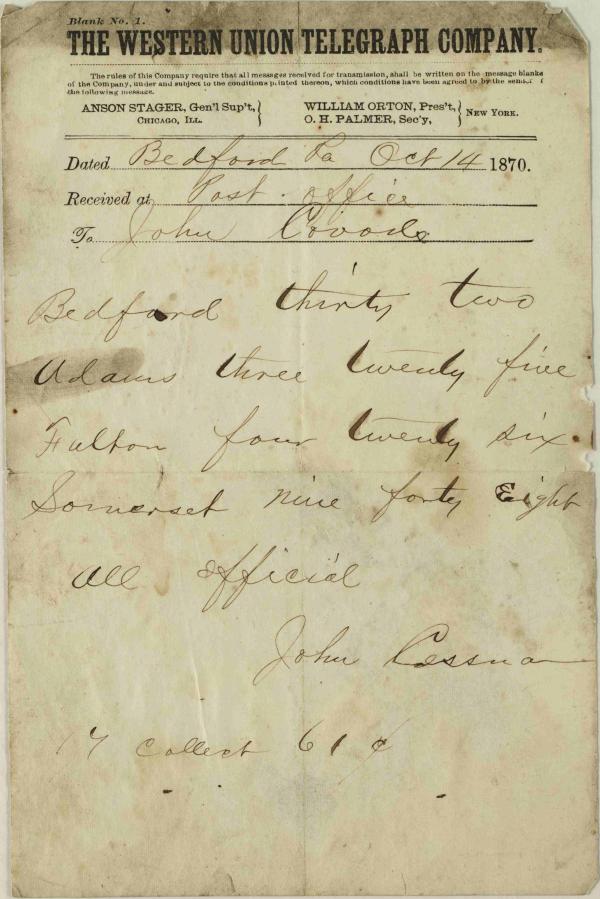 Blank No. 1.
THE WESTERN UNION TELEGRAPH COMPANY.
The rules of this Company require that all messages received for transmission, shall be written on the message blanks
of the Company, under and subject to the conditions printed thereon, which conditions have been agreed to by the sender of
the following message.
ANSON STAGER, Gen'l Sup't, CHICAGO, ILL.
WILLIAM ORTON, Pres't, O. H. PALMER, Sec'y, NEW YORK.
Dated Bedford Pa Oct 14 1870.
Received at Post office
To John Covode
Bedford thirty two
Adams three twenty five
Fulton four twenty six
Somerset nine forty Eight
all official
John Cessna
17 collect 61 ¢